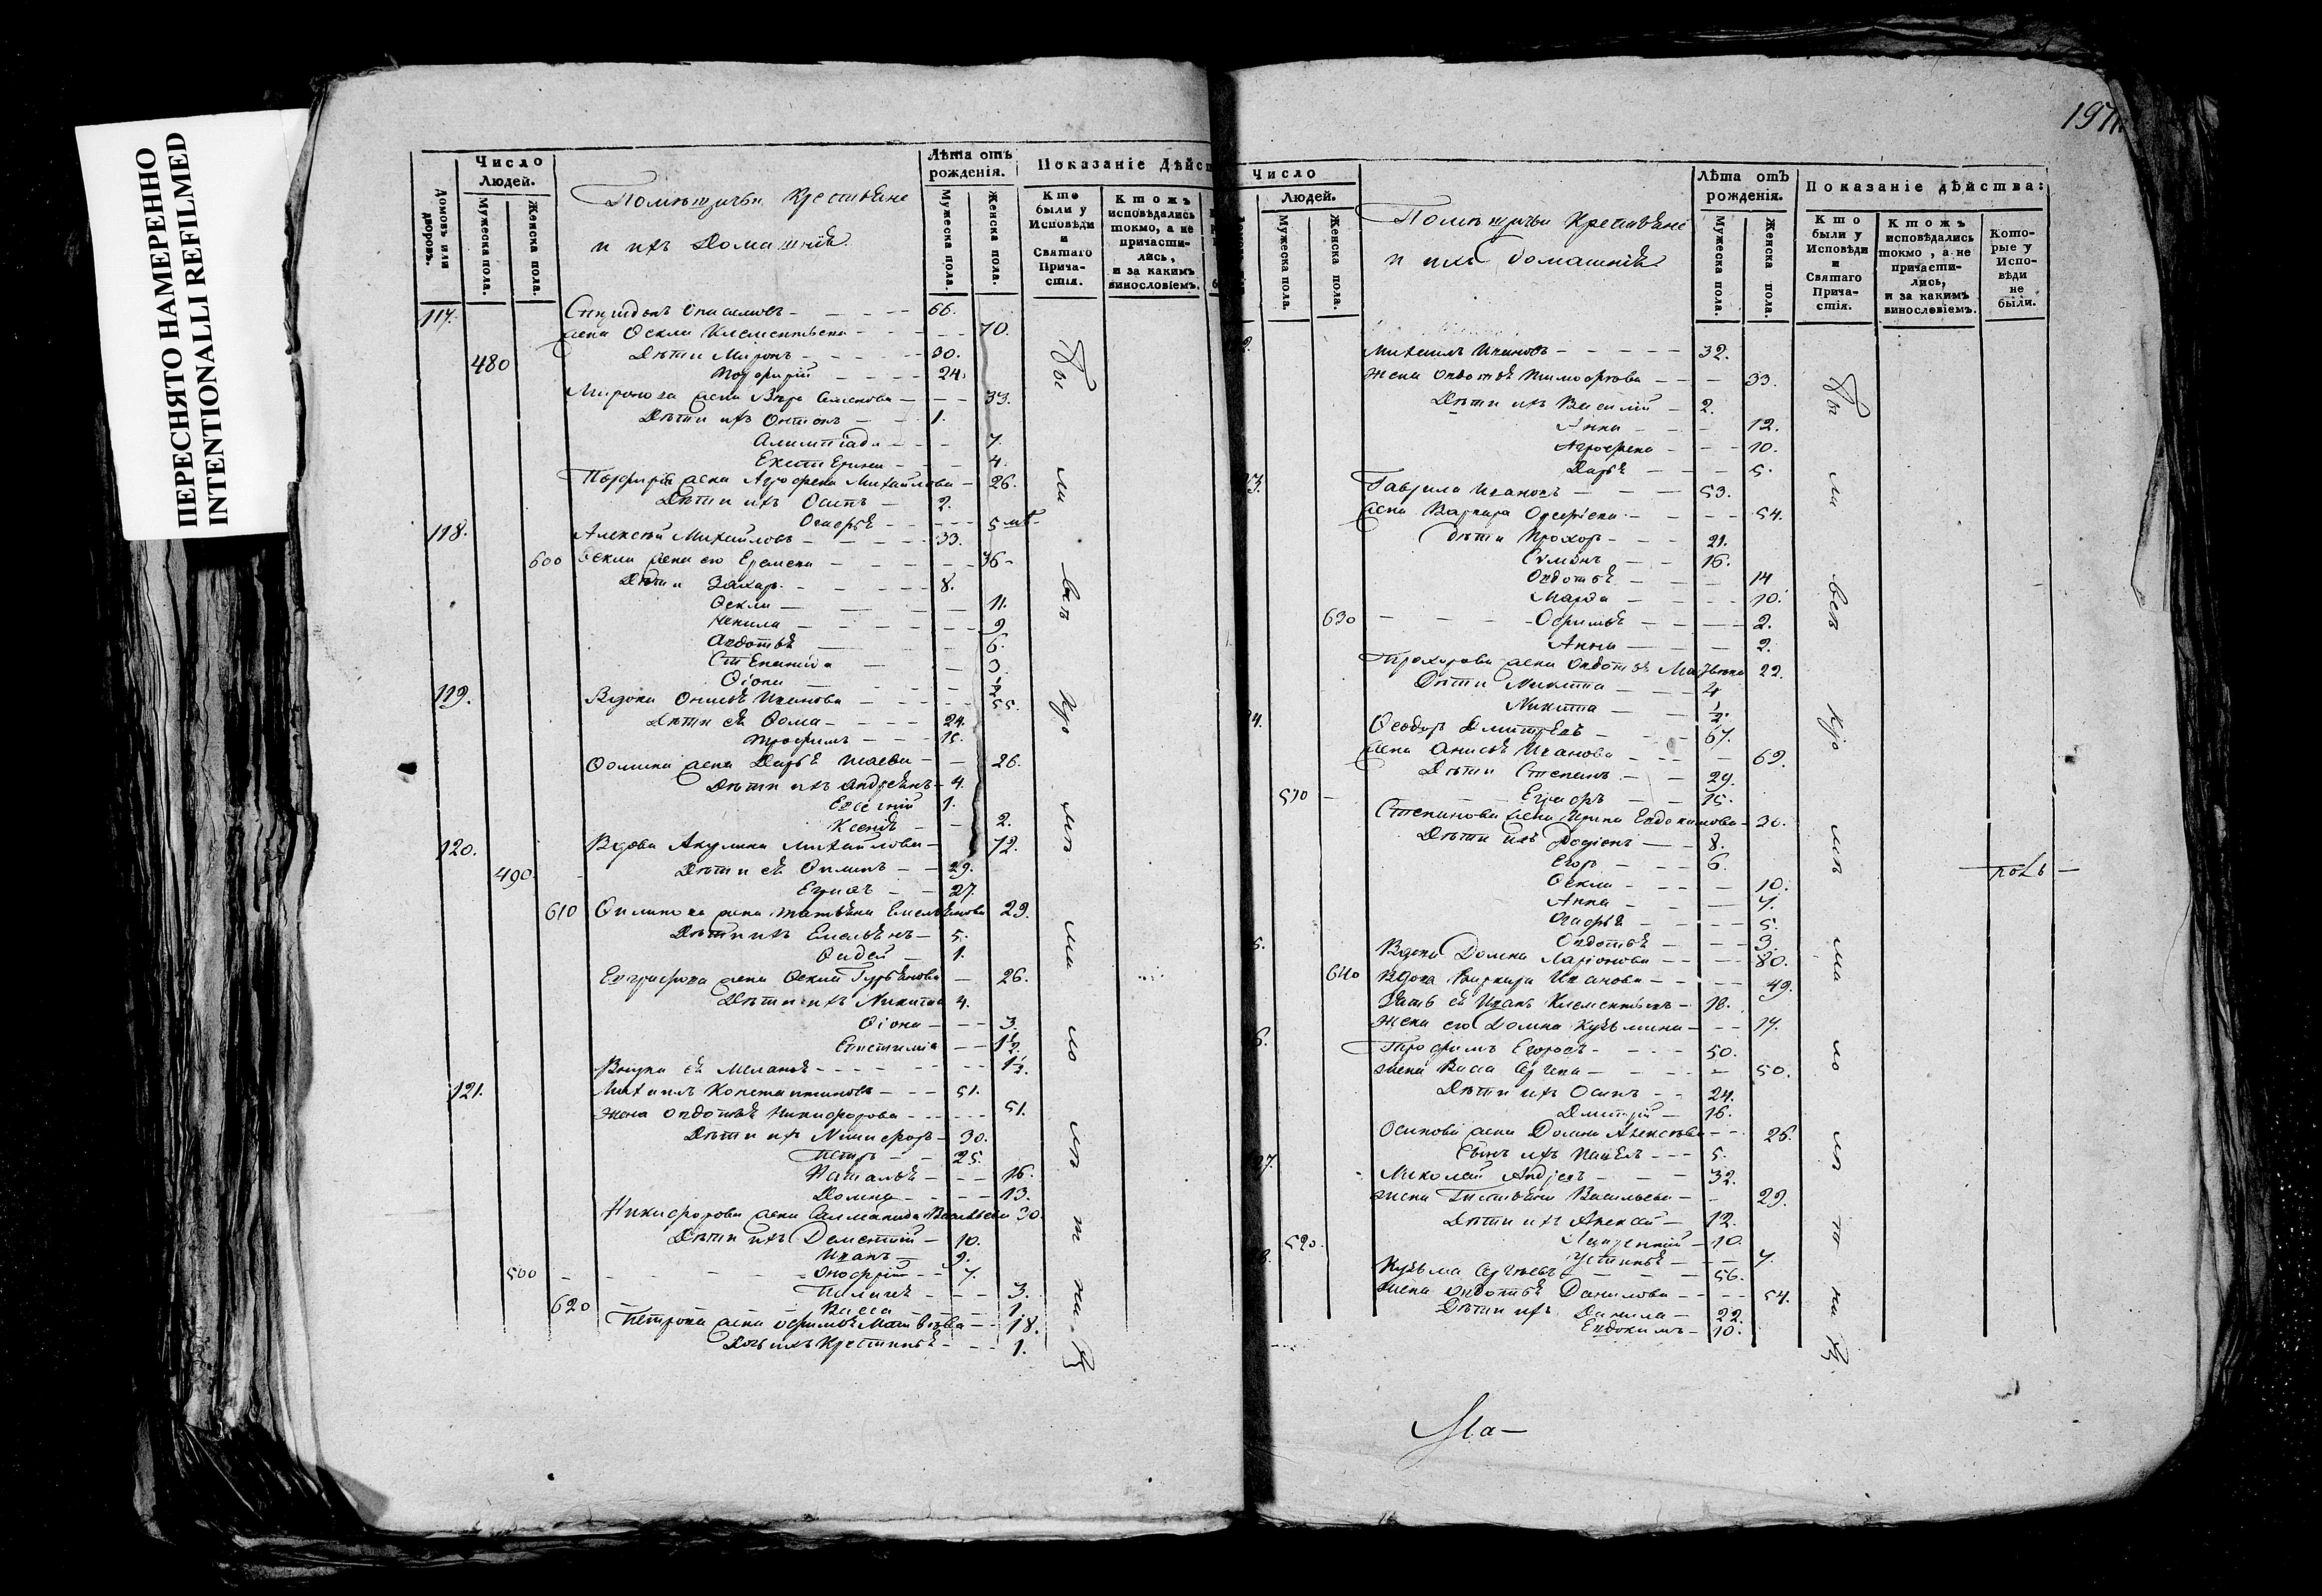 ПЕРЕСНЯТО НАМЕРЕННО
INTENTIONALLI REFILMED
Число Людей.
Домовъ или дворовъ.
Мужеска пола.
Женска пола.
Помѣщичьи Крестьяне
и ихъ Домашніе.
Лѣта отъ рожденія.
Мужеска пола.
Женска пола.
Показаніе Дѣйс
Кто были у Исповѣди и Святаго Прича-стія.
Ктожъ исповѣдались токмо, а не причасти-лись, и за какимъ винословіемъ.
117. 66.
жена Ѳекла Клементьева 70.
480 Дѣти Миронъ 30.
Порфирій 24.
Миронова жена Вѣра Семенова 33.
Дѣти ихъ Онтонъ 1.
Алимпіада 7.
Екатерина 4.
Порфирія жена Агрофена Михайлова 26.
Дѣти ихъ Осипъ 2.
Огафья 5 мѣ.
118. Алексѣй Михайловъ 33.
600 Ѳекла жена его Еремеева 36
Дѣти Захаръ 8.
Ѳекла 11.
Ненила 9
Авдотья 6.
Степанида 3.
Ѳіона 1/2
119. Вдова Онисья Иванова 55.
Дѣти ея Ѳома 24.
Трофимъ 15.
Ѳомина жена Дарья 26.
Дѣти ихъ Андреянъ 4.
Евсѣгній 1.
Ксенія 2.
120. Вдова Акулина Михайлова 72.
490. Дѣти ея Филипъ 29.
27.
610 Филипова жена Татьяна Емельянова 29.
Дѣти ихъ Емельянъ 5.
Фадей 1.
Евграфова жена Ѳекла Гурьянова 26.
Дѣти ихъ Никита 4.
Ѳіона 3.
1 1/2.
Внука ея Меланья 1 1/2.
121. Михаилъ Константиновъ 51.
жена Овдотья Никифорова 51.
Дѣти ихъ Никифоръ 30.
Петръ 25.
Наталья 16.
Домна 13.
Никифорова жена Васильева 30.
Дѣти ихъ Дементій 10.
Иванъ 9.
500 Онофрій 7.
Пелагея 3.
620 Васса 1.
Петрова жена Офимья Матвѣева 18.
Дочь ихъ Крестинья 1.
Бы
ли
всѣ
кро
мѣ
ма
ло
лѣ
т
ни
хъ
197
Число Людей.
Мужеска пола.
Женска пола.
Помѣщичьи Крестьяне
и ихъ домашніе
Лѣта отъ рожденія.
Мужеска пола.
Женска пола.
Показаніе дѣйства:
Кто были у Исповѣди и Святаго Прича-стія.
Ктожъ исповѣдались токмо, а не причасти-лись, и за какимъ винословіемъ.
Кото-рые у Испо-вѣди не были.
2. Михаилъ Ивановъ 32.
жена Овдотья Тимофеева 33.
Дѣти ихъ Василій 2.
Анна 12.
Агрофена 10.
Дарья 5.
23. Гаврила Ивановъ 53.
жена Варвара 54.
Дѣти Прохоръ 21.
Семіонъ 16.
Овдотья 14
Марфа 10.
630 Офимья 2.
Анна 2.
Прохорова жена Овдотья Матвѣева 22.
Дѣти Никита 4
Никита 1/2.
24. Ѳеодоръ Дмитрѣевъ 67.
жена Анисья Иванова 69.
Дѣти Степанъ 29.
510 Евграфъ 15.
Степанова жена Ирина Евдокимова 30.
Дѣти ихъ Родіонъ 8.
Егоръ 6.
Ѳекла 10.
Анна 7.
Огафья 5.
Овдотья 3.
5. Вдова Домна Ларіонова 80.
640 Вдова Варвара Иванова 49.
Зять ея Иванъ Клементьевъ 18.
жена его Домна Кузьмина 17.
6. Трофимъ Егоровъ 50.
жена Васса 50.
Дѣти ихъ Осипъ 24.
Дмитрій 16.
Осипова жена Домна Алексѣева 26.
Сынъ ихъ Павелъ 5.
27. Миколай Андреевъ 32.
жена Татьяна Васильева 29.
Дѣти ихъ Алексѣй 12.
520. 10.
Устинья 7.
8. Кузьма Сергѣевъ 56.
жена Овдотья Данилова 54.
Дѣти ихъ Данила 22.
Евдокимъ 10.
Бы
ли
всѣ
кро
мѣ
ма
ло
лѣ
т
ни
хъ